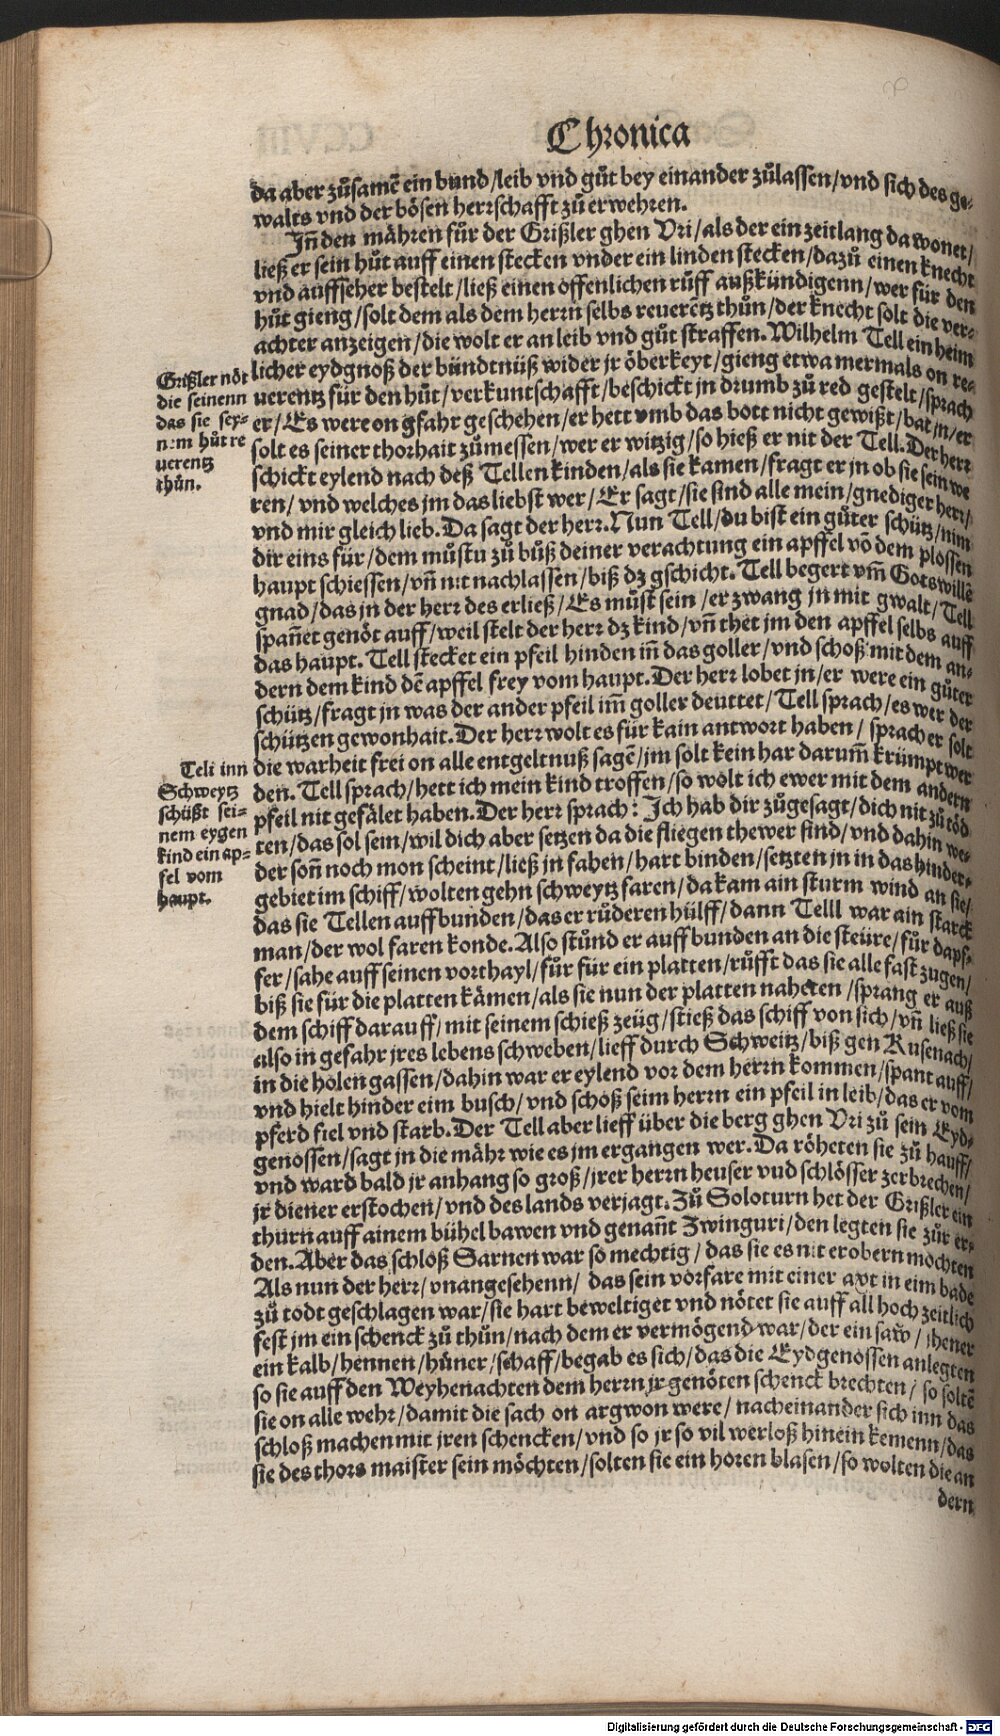 Chronica
da aber zůsamẽ ein bund/leib vnd gůt bey einander zůlassen/vnd sich des ge-
walts vnd der bösen herrschafft zů erwehren.
Jn̄ den mähren fůr der Grißler ghen Vri/als der ein zeitlang da wonet/
ließ er sein hůt auff einen stecken vnder ein linden stecken/dazů einen knecht
vnd auffseher bestelt/ließ einen offenlichen růff außkündigenn/wer für den
hůt gieng/solt dem als dem herrn selbs reuerẽtz thůn/der knecht solt die ver-
achter anzeigen/die wolt er an leib vnd gůt straffen. Wilhelm Tell ein heim
licher eydgnoß der bündtnüß wider jr öberkeyt/gieng etwa mermals on re-
uerentz für den hůt/verkuntschafft/beschickt jn drumb zů red gestelt/sprach
er/Es were on gfahr geschehen/er hett vmb das bott nicht gewißt/bat jn/er
solt es seiner thorhait zůmessen/wer er witzig/so hieß er nit der Tell. Der herr
schickt eylend nach deß Tellen kinden/als sie kamen/fragt er jn ob sie sein we
ren/vnd welches jm das liebst wer/Er sagt/sie sind alle mein/gnediger herr/
vnd mir gleich lieb. Da sagt der herr. Nun Tell/du bist ein gůter schütz/nim
dir eins für/dem můstu zů bůß deiner verachtung ein apffel võ dem plossen
haupt schiessen/vn̄ nit nachlassen/biß dz gschicht. Tell begert vm̄ Gotswillẽ
gnad/das jn der herr des erließ/Es můst sein/er zwang jn mit gwalt/Tell
span̄et genöt auff/weil stelt der herr dz kind/vn̄ thet jm den apffel selbs auff
das haupt. Tell stecket ein pfeil hinden in̄ das goller/vnd schoß mit dem an-
dern dem kind dẽ apffel frey vom haupt. Der herr lobet jn/er were ein gůter
schütz/fragt jn was der ander pfeil im̄ goller deuttet/Tell sprach/es wer der
schützen gewonhait. Der herr wolt es für kain antwort haben/sprach er solt
die warheit frei on alle entgeltnuß sagẽ/jm solt kein har darum̄ krümpt wer
den. Tell sprach/hett ich mein kind troffen/so wolt ich ewer mit dem andern
pfeil nit gefälet haben. Der herr sprach: Jch hab dir zůgesagt/dich nit zů töd
ten/das sol sein/wil dich aber setzen da die fliegen thewer sind/vnd dahin we-
der son̄ noch mon scheint/ließ jn fahen/hart binden/setzten jn in das hinder-
gebiet im schiff/wolten gehn schweytz faren/da kam ain sturm wind an sie/
das sie Tellen auff bunden/das er růderen hülff/dann Telll war ain starck
man/der wol faren konde. Also stůnd er auff bunden an die steüre/fůr dapf-
fer/sahe auff seinen vorthayl/fůr für ein platten/růfft das sie alle fast zugen/
biß sie für die platten kämen/als sie nun der platten naheten/sprang er auß
dem schiff darauff/mit seinem schieß zeüg/stieß das schiff von sich/vn̄ ließ sie
also in gefahr jres lebens schweben/lieff durch Schweitz/biß gen Kusenach/
in die holen gassen/dahin war er eylend vor dem herrn kommen/spant auff/
vnd hielt hinder eim busch/vnd schoß seim herrn ein pfeil in leib/das er vom
pferd fiel vnd starb. Der Tell aber lieff über die berg ghen Vri zů sein Eyd-
genossen/sagt jn die mähr wie es jm ergangen wer. Da röheten sie zů hauff/
vnd ward bald jr anhang so groß/jrer herrn heuser vud schlösser zerbrechen/
jr diener erstochen/vnd des lands verjagt. Zů Soloturn het der Grißler ein
thurn auff ainem bühel bawen vnd genan̄t Zwinguri/den legten sie zůr er-
den. Aber das schloß Sarnen war so mechtig/das sie es nit erobern mochten
Als nun der herr/vnangesehenn/das sein vorfare mit einer axt in eim bade
zů todt geschlagen war/sie hart beweltiget vnd nötet sie auff all hoch zeitlich
fest jm ein schenck zů thůn/nach dem er vermögend war/der ein saw/jhener
ein kalb/hennen/hüner/schaff/begab es sich/das die Eydgenossen anlegten
so sie auff den Weyhenachten dem herrn jr genöten schenck brechten/so soltẽ
sie on alle wehr/damit die sach on argwon were/nacheinander sich inn das
schloß machen mit jren schencken/vnd so jr so vil werloß hinein kemenn/das
sie des thors maister sein möchten/solten sie ein horen blasen/so wolten die an
dern
Grißler nöt
die seinenn
das sie sey-
nem hůt re
uerentz
thůn.
Tell inn
Schweytz
schüßt sei-
nem eygen
kind ein ap-
fel vom
haupt.
Digitalisierung gefördert durch die Deutsche Forschungsgemeinschaft - DFG